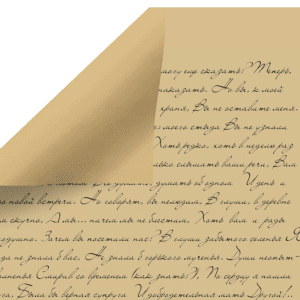 могу еще сказать? Теперь,
наказать. Но вы, к моей
храня, Вы не оставите меня.
моего стыда Вы не узнали
Хоть редко, хоть в неделю раз
слышать ваши речи, Вам
думать об одном И день и
новой встречи. Но говорят, вы нелюдим. В глуши, в деревне
скучно, А мы... ничем мы не блестим, Хоть вам и рады
Зачем вы посетили нас? В глуши забытого селенья Я
не знала б вас, Не знала б горького мученья. Души неопыт-
волненья Смирив со временем (как знать?), По сердцу я нашла
Была бы верная супруга И добродетельная мать. Другой!..